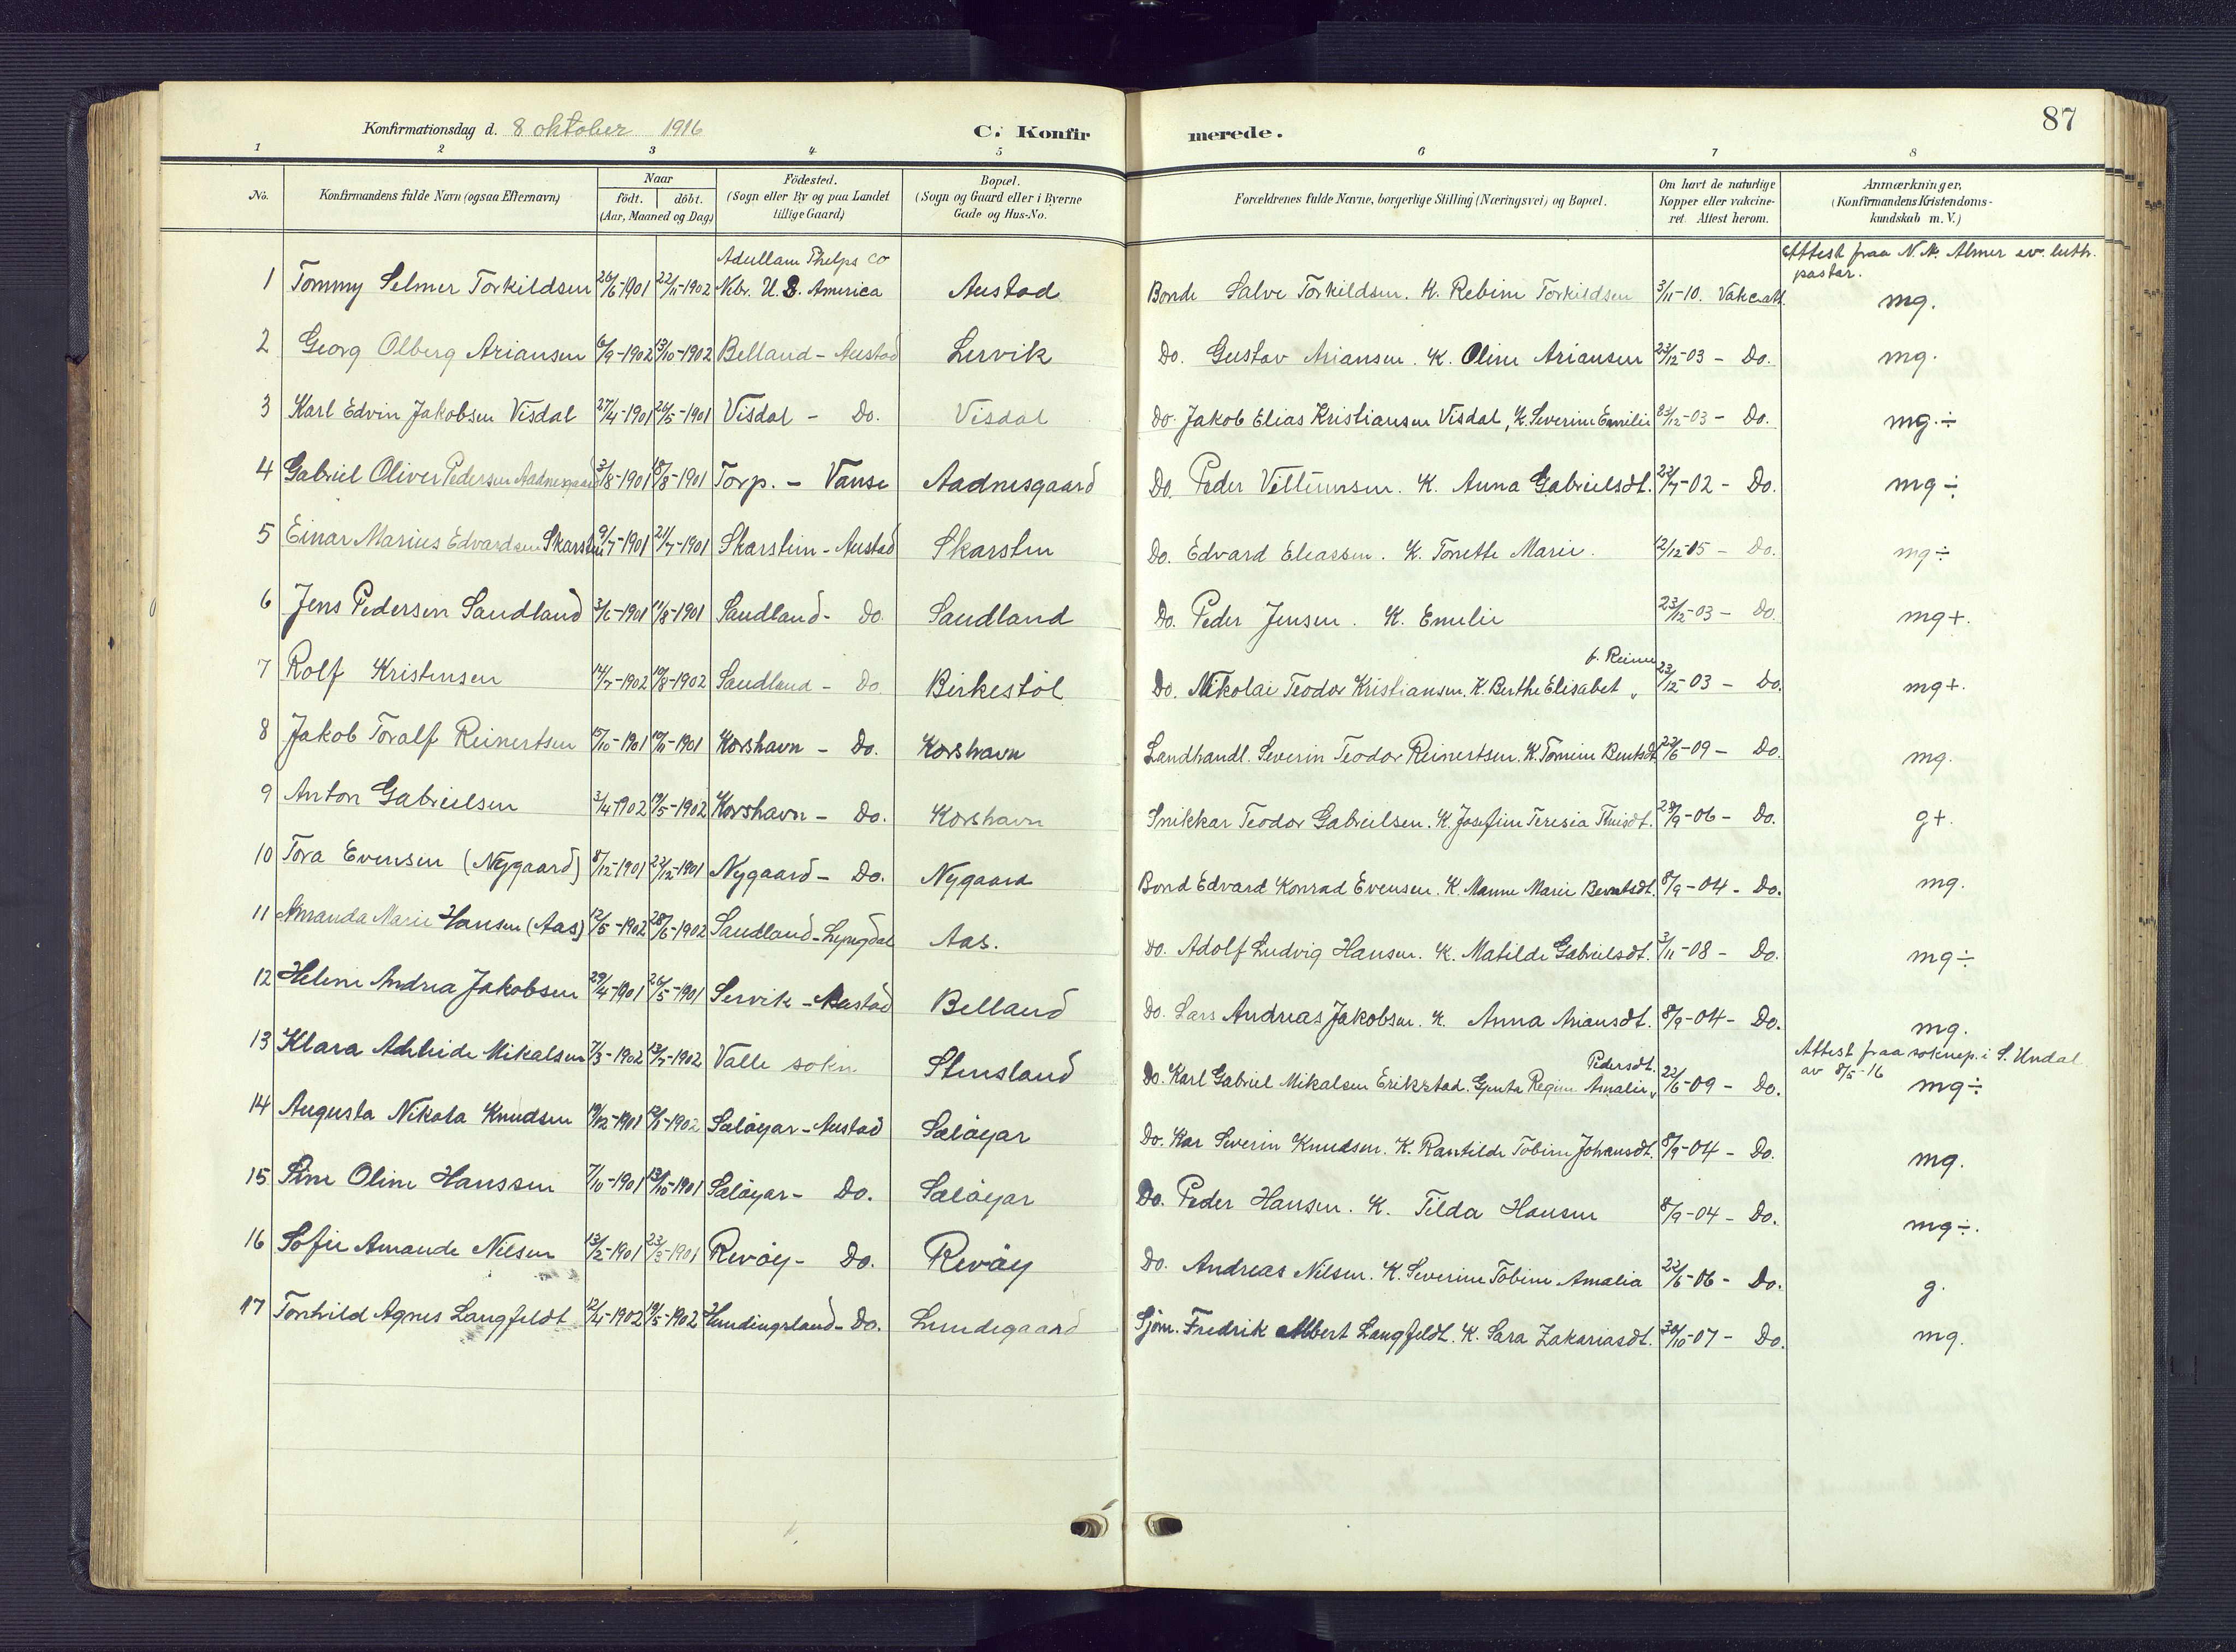 87
Konfirmationsdag d. 8 oktober 1916 C. Konfirmerede.
1 2 3 4 5 6 7 8
No. Konfirmandens fulde Navn (ogsaa Efternavn) Naar født. døbt. (Aar, Maaned og Dag) Fødested. (Sogn eller By og paa Landet tillige Gaard) Bopæl. (Sogn og Gaard eller i Byerne Gade og Hus-No. Forældrenes fulde Navne, borgerlige Stilling (Næringsvei) og Bopæl. Om havt de naturlige Kopper eller vakcineret. Attest herom. Anmærkninger. (Konfirmandens Kristendomskundskab m. V.)
Adullam Phelps Co Attest fraa N. M. Almer ev. luth. pastor.
1 Tommy Selmer Torkildsen 26/6-1901 22/11-1902 Nebr. U.S. America Austad Bonde Salve Torkildsen. K. Rebine Torkildsen 3/11-10. Vakc.att. mg.
2 Georg Olberg Ariansen 6/9-1902 13/10-1902 Belland - Austad Lervik Do. Gustav Ariansen. K. Oline Ariansen 23/12-03 - Do. mg.
3 Karl Edvin Jakobsen Visdal 27/4-1901 26/5-1901 Visdal - Do. Visdal Do. Jakob Elias Kristiansen Visdal, K. Severine Emilie 23/12-03 - Do. mg.÷
4 Gabriel Oliver Pedersen Aadnesgaard 3/8-1901 18/8-1901 Torp. - Vanse Aadnesgaard Do. Peder Vellumsen. K. Anna Gabrielsdt. 22/7-02 - Do. mg÷
5 Einar Marius Edvardsen Skarsten 9/7-1901 21/7-1901 Skarstein - Austad Skarsten Do. Edvard Eleassen. K. Tonette Marie. 12/12-05 - Do. mg÷
6 Jens Pedersen Sandland 3/6-1901 11/8-1901 Sandland - Do. Sandland Do. Peder Jensen. K. Emelie 23/12-03 - Do. mg+.
7 Rolf Kristensen 14/7-1902 10/8-1902 Sandland - Do. Birkestøl Do. Nikolai Teodor Kristiansen. K. Berthe Elisabet „ f. Reime 23/12-03 - Do. mg+.
8 Jakob Toralf Reinertsen 15/10-1901 10/11-1901 Korshavn - Do. Korshavn Landhandl. Severin Teodor Reinertsen. K. Tomine Bentsdt. 22/6-09 - Do. mg.
9 Anton Gabrielsen 3/4-1902 19/5-1902 Korshavn - Do. Korshavn Snikkar Teodor Gabrielsen. K. Josefine Teresia 28/9-06 - Do. g+.
10 Tora Evensen (Nygaard) 8/12-1901 22/12-1901 Nygaard - Do. Nygaard Bond Edvard Konrad Evensen. K. Manne Marie Berntsdt. 8/9-04 - Do. mg.
11 Amanda Marie Hansen (Aas) 12/5-1902 28/6-1902 Sandland - Lyngdal Aas. Do. Adolf Ludvig Hansen. K. Matilde Gabrielsdt. 3/11-08 - Do. mg÷
12 Helene Andrea Jakobsen 29/4-1901 26/5-1901 Lervik - Austad Belland Do. Lars Andreas Jakobsen. K. Anna Ariansdt. 8/9-04 - Do. mg.
13 Klara Adeleide Mikalsen 7/3-1902 13/7-1902 Valle sokn Stensland Do. Karl Gabriel Mikalsen Erikstad. Gunta Regine Amalie „ Pedersdt. 22/6-09 - Do. Attest fraa soknep. i S. Undal av 8/5-16 mg÷
14 Augusta Nikola Knudsen 19/12-1901 12/1-1902 Seløyar - Austad Seløyar Do. Kar Severin Knudsen. K. Rantilde Tobine Johansdt. 8/9-04 - Do. mg.
15 Sine Oline Hanssen 7/10-1901 13/10-1901 Seløyar - Do. Seløyar Do. Peder Hansen. K. Tilda Hansen 8/9-04 - Do. mg÷.
16 Sofie Amande Nilsen 13/2-1901 23/3-1901 Revøy - Do. Revøy Do. Andreas Nilsen. K. Severine Tobine Amalia 22/6-06 - Do. g.
17 Torhild Agnes Langfeldt 12/4-1902 19/5-1902 Hundingsland - Do. Lundegaard Sjøm. Fredrik Albert Langfeldt. K. Sara Zakariasdt. 30/10-07 - Do. mg.